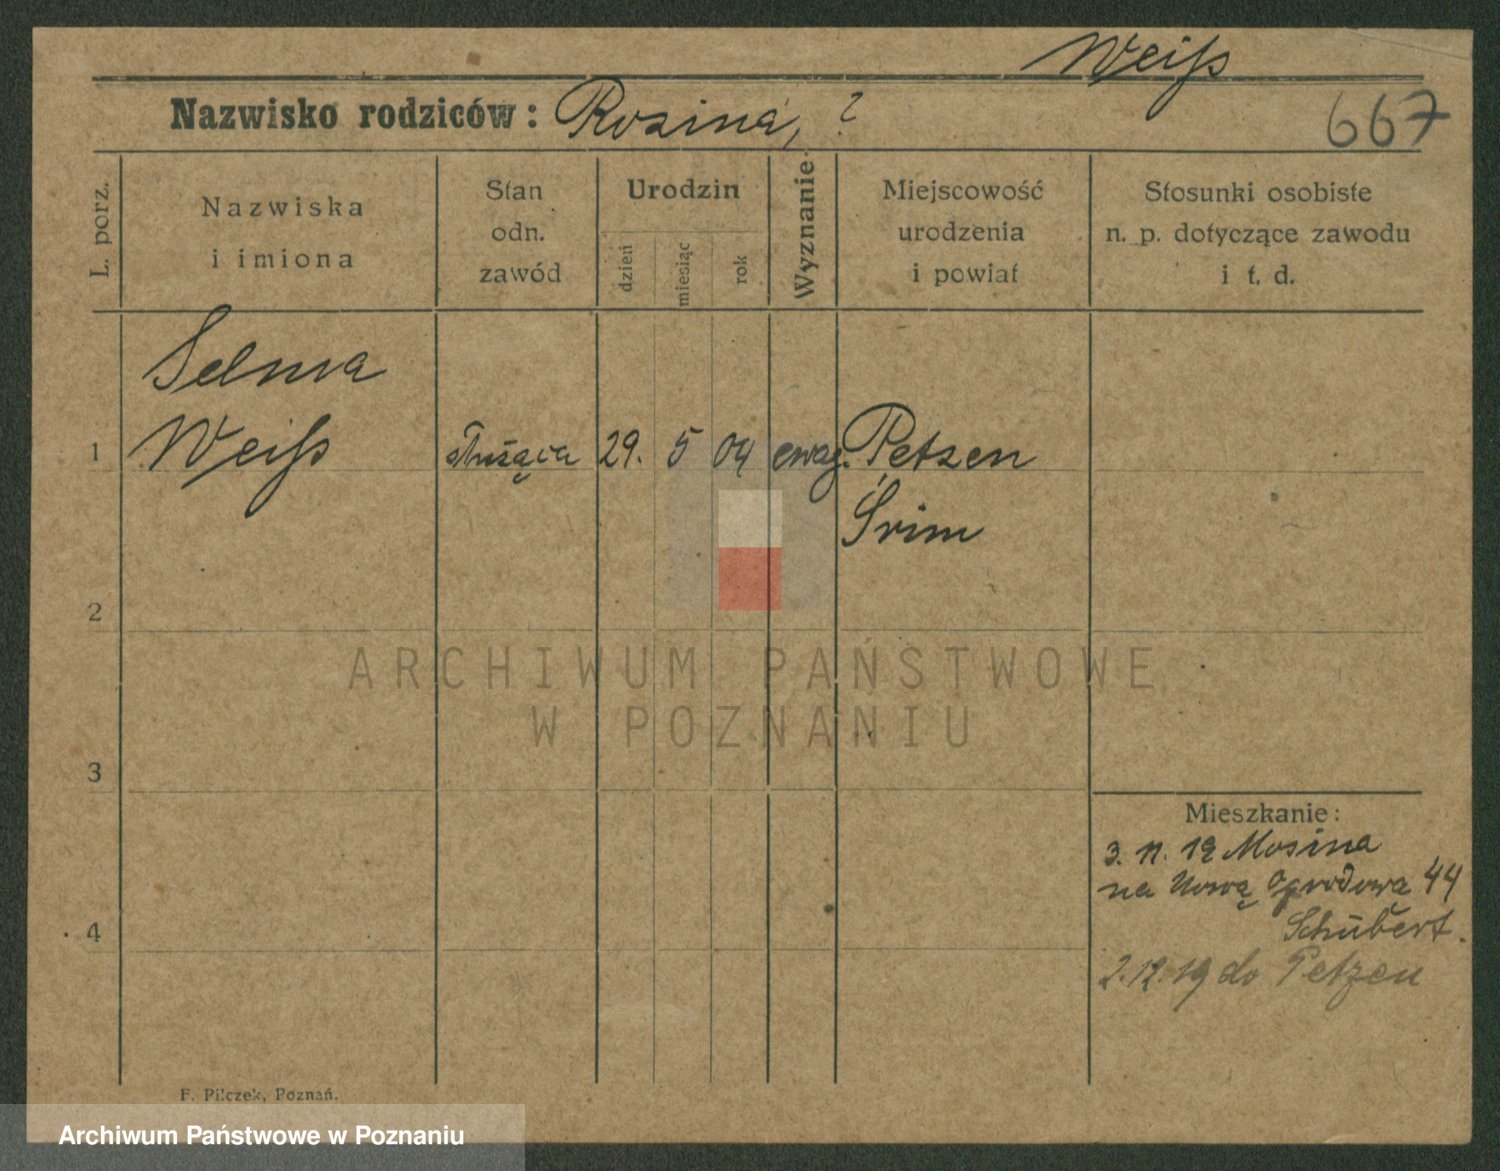 Weiß
Nazwisko rodziców: Rozina, ?
667
L. porz.
Nazwiska
i imiona
Stan
odn.
zawód
Urodzin
dzień
miesiąc
rok
Wyznanie
Miejscowość
urodzenia
i powiat
Stosunki osobiste
n. p. dotyczące zawodu
i t. d.
Selma
1 Weiß służąca 29. 5 04 ewag. Petzen
Śrim
2
ARCHIWUM PAŃSTWOWE
W POZNANIU
3
Mieszkanie:
3. 11. 19 Mosina
na Nową Ogrodowa 44
4 Schubert.
2.12.19 do Petzen
F. Pilczek, Poznań.
Archiwum Państwowe w Poznaniu